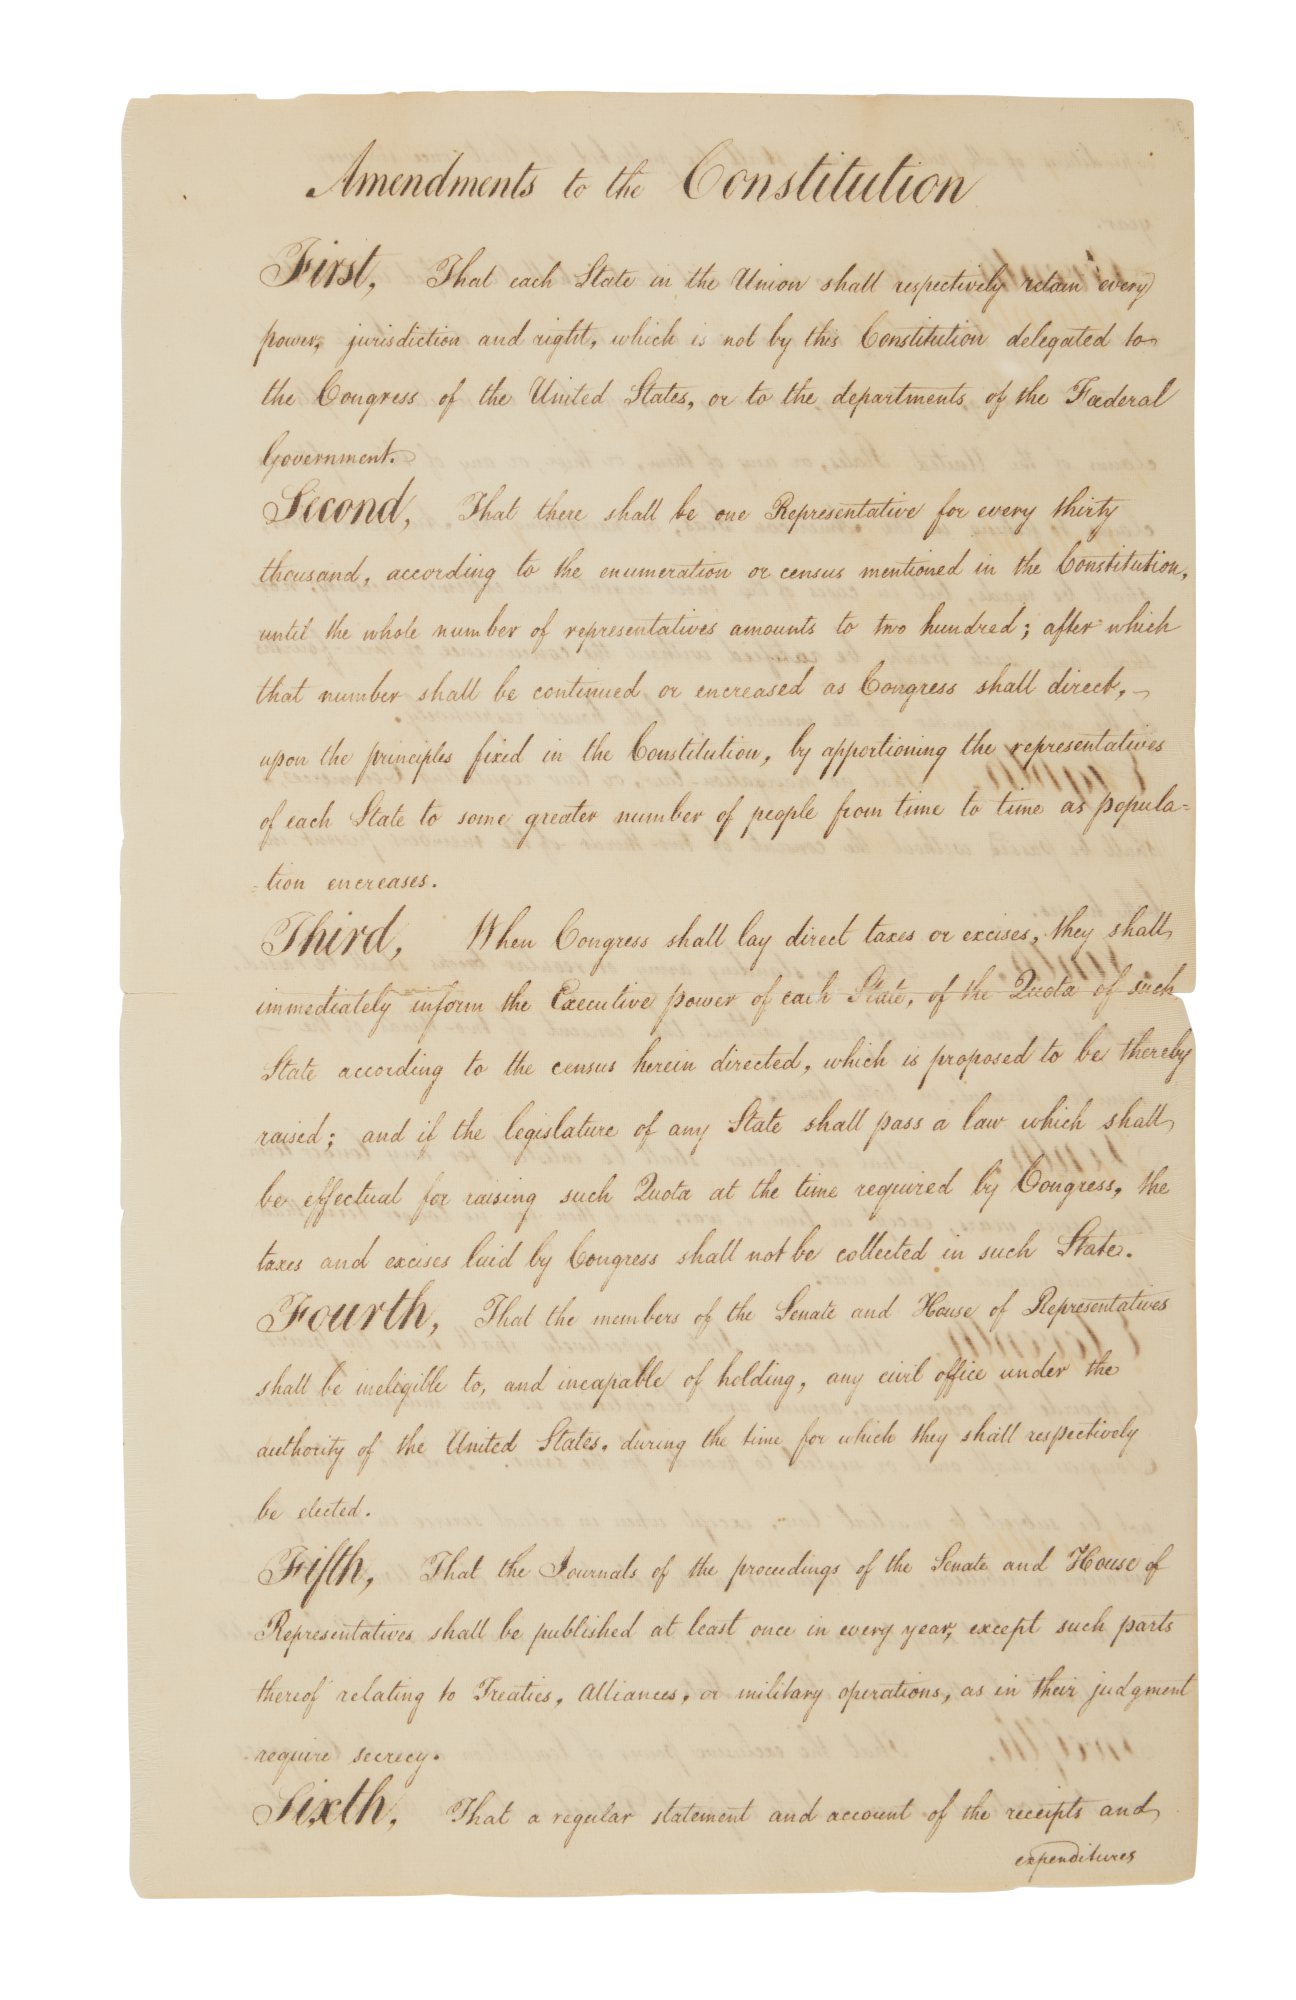 Amendments to the Constitution
First, That each State in the Union shall respectively retain every
power, jurisdiction and right, which is not by this Constitution delegated to
the Congress of the United States, or to the departments of the Fœderal
Government.
Second, That there shall be one Representative for every thirty
thousand, according to the enumeration or census mentioned in the Constitution,
until the whole number of representatives amounts to two hundred; after which
that number shall be continued or encreased as Congress shall direct,
upon the principles fixed in the Constitution, by apportioning the representatives
of each State to some greater number of people from time to time as popula=
=tion encreases.
Third, When Congress shall lay direct taxes or excises, they shall
immediately inform the Executive power of each State, of the Quota of such
State according to the census herein directed, which is proposed to be thereby
raised; and if the legislature of any State shall pass a law which shall
be effectual for raising such Quota at the time required by Congress, the
taxes and excises laid by Congress shall not be collected in such State.
Fourth, That the members of the Senate and House of Representatives
shall be ineligible to, and incapable of holding, any civil office under the
authority of the United States, during the time for which they shall respectively
be elected.
Fifth, That the Journals of the proceedings of the Senate and House of
Representatives shall be published at least once in every year, except such parts
thereof relating to Treaties, Alliances, or military operations, as in their judgment
require secrecy.
Sixth, That a regular statement and account of the receipts and
expenditures